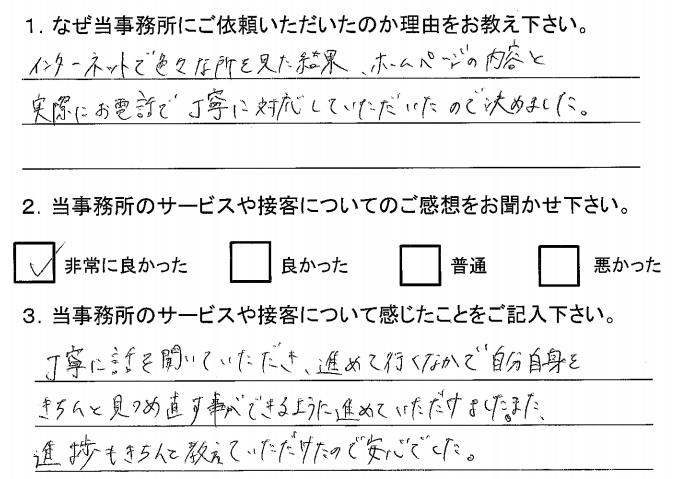 1. なぜ当事務所にご依頼いただいたのか理由をお教え下さい。
インターネットで色々な所を見た結果、ホームページの内容と
実際にお電話で丁寧に対応していただいたので決めました。
2. 当事務所のサービスや接客についてのご感想をお聞かせ下さい。
非常に良かった 良かった 普通 悪かった
3. 当事務所のサービスや接客について感じたことをご記入下さい。
丁寧に話を聞いていただき、進めて行くなかで自分自身を
きちんと見つめ直す事ができるように進めていただけました。また、
進捗もきちんと教えていただけたので安心でした。